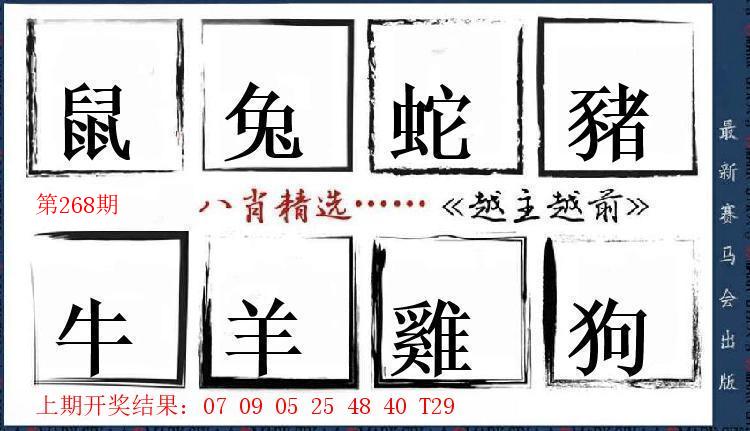 鼠 兔 蛇 豬
第268期 八肖精选……《越主越前》
牛 羊 雞 狗
上期开奖结果：07 09 05 25 48 40 T29
最新赛马会出版